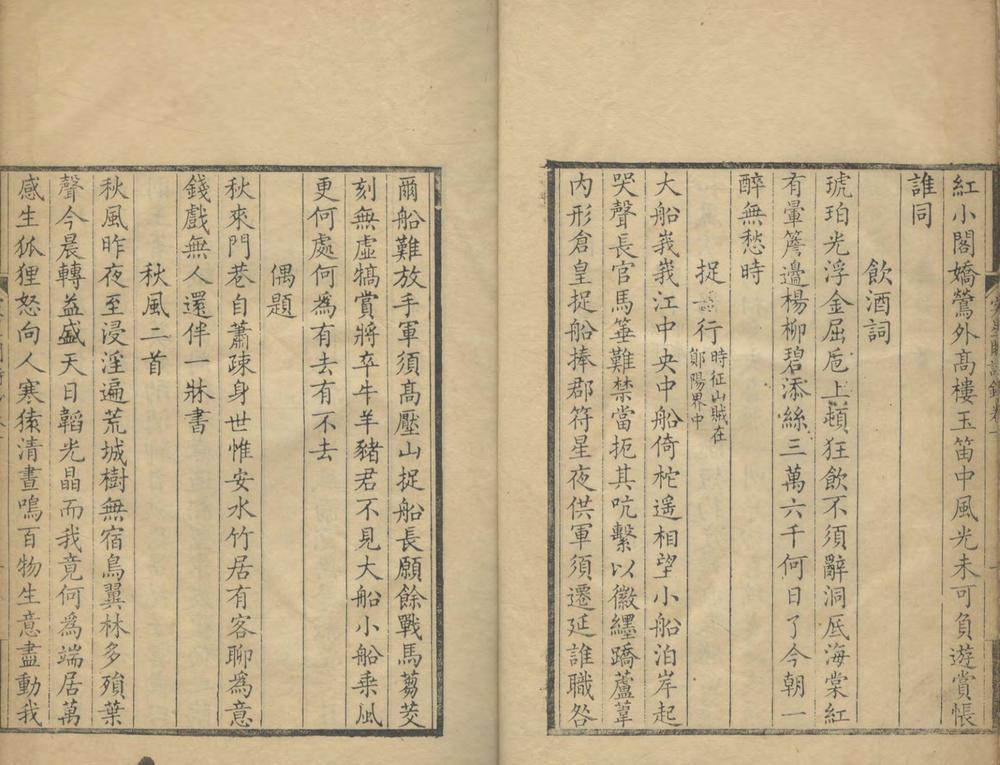 紅小閣嬌鶯外高樓玉笛中風光未可負遊賞悵
誰同
飲酒詞
琥珀光浮金屈卮上頓狂飲不須辭洞底海棠紅
有暈簷邊楊柳碧添絲三萬六千何日了今朝一
醉無愁時
捉行
時征山賊在
鄖陽界中
大船峩峩江中央中船倚柁遥相望小船泊岸起
哭聲長官馬箠難禁當扼其吭繫以徽纆蹻蘆葦
内形倉皇捉船捧郡符星夜供軍須遷延誰職咎
爾船難放手軍須高壓山捉船長願餘戰馬芻茭
刻無虛犒賞將卒牛羊豬君不見大船小船乘風
更何處何為有去有不去
偶題
秋來門巷自蕭疎身世惟安水竹居有客聊為意
錢戲無人還伴一牀書
秋風二首
秋風昨夜至浸淫遍荒城樹無宿鳥翼林多殞葉
聲今晨轉益盛天日韜光晶而我竟何為端居萬
感生狐狸怒向人寒猿清晝鳴百物生意盡動我